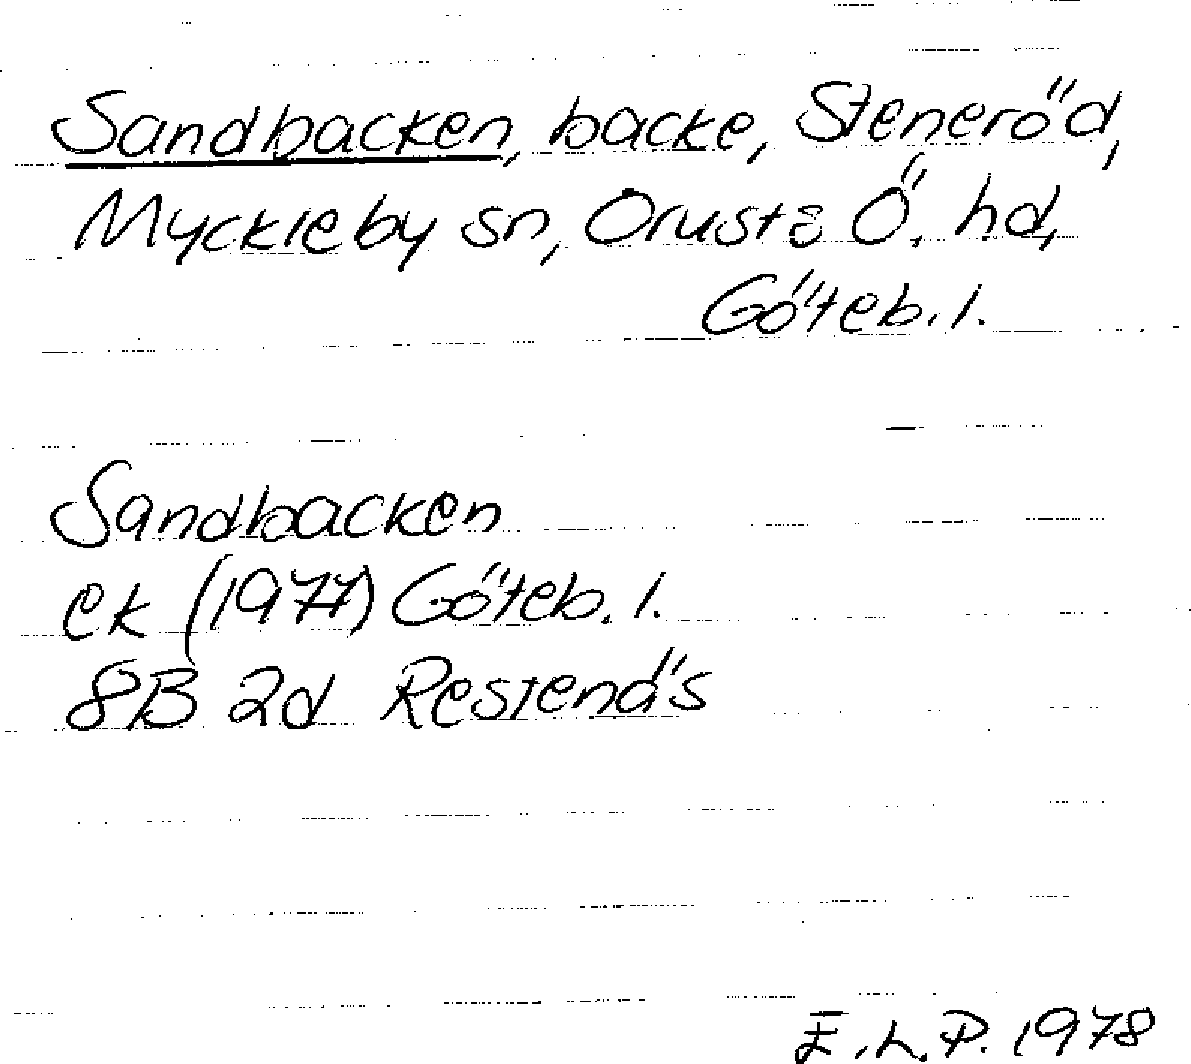 Sandbacken, backe, Steneröd,
Myckleby sn, Orusts Ö. hd,
Göteb. l.
Sandbacken
ek (1977) Göteb. l.
8B 2d Restenäs
E.L.P. 1978